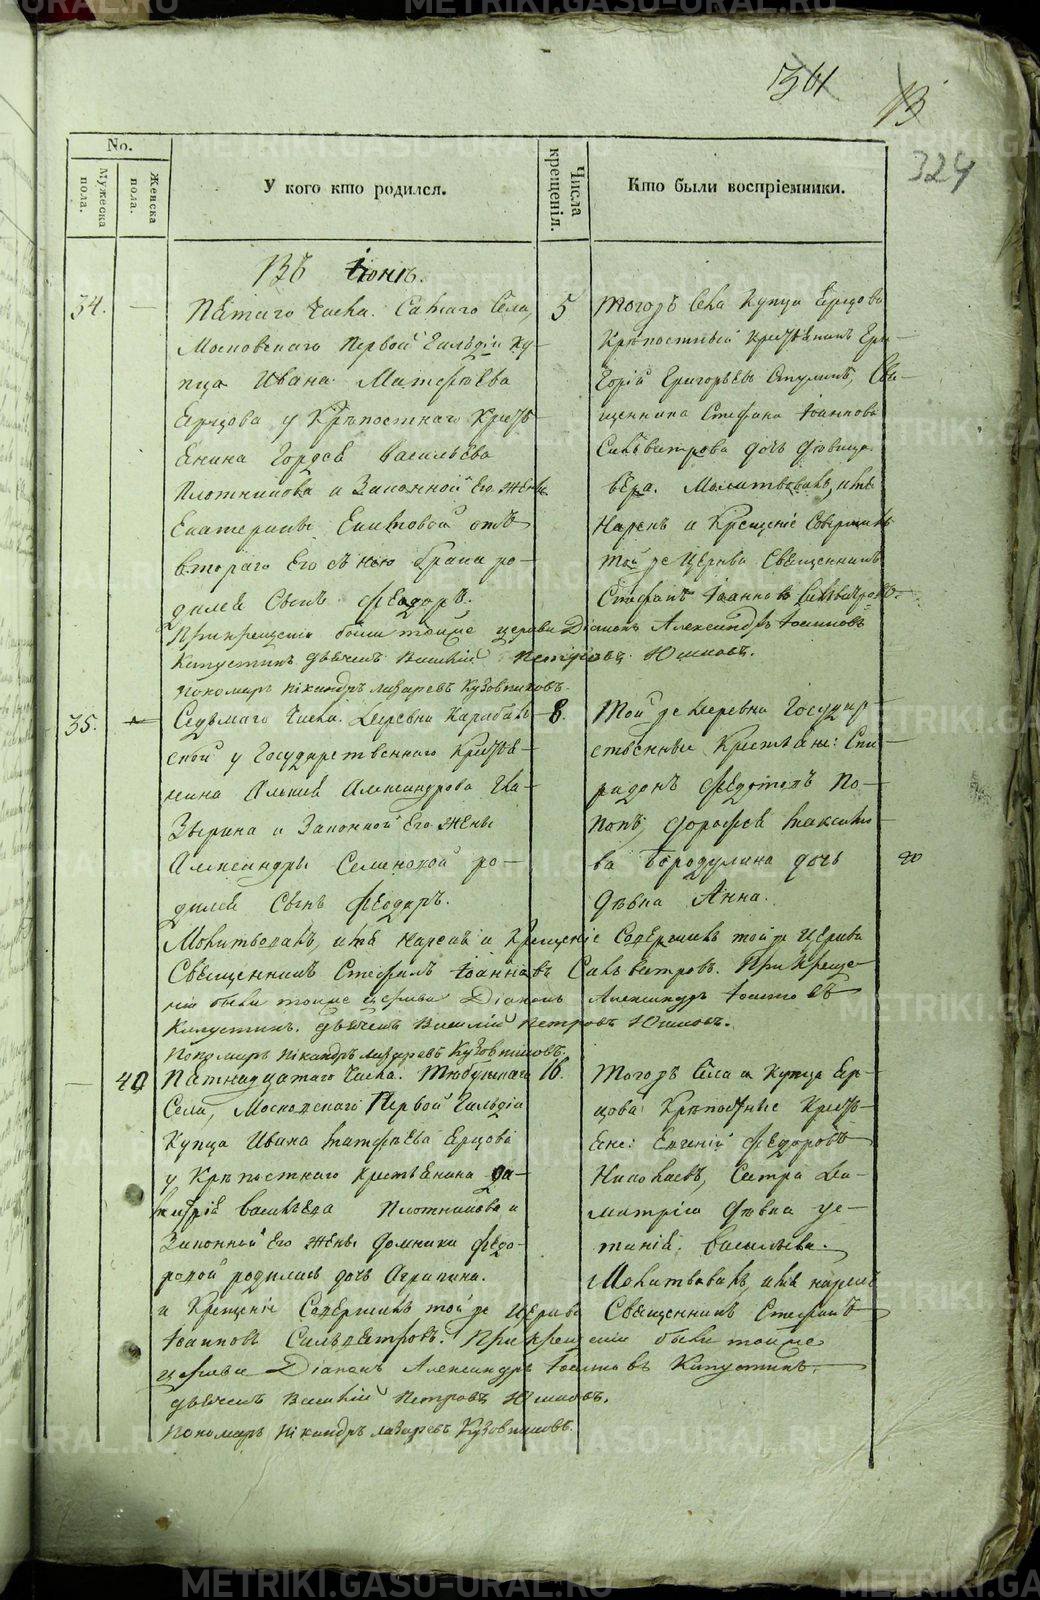 361
13
324
No.
Мужеска пола.
Женска пола.
У кого кто родился.
Числа крещенія.
Кто были воспріемники.
Въ Іюнѣ.
34. — Пятаго числа. Сатаго Села,
Московскаго Первой Гильдіи Ку-
пца Ивана Матфѣева
Ерцова у Крѣпостнаго Крестъ-
Енина Гордея Васильева
Плотникова и Законной Его жены
Екатерины от
втораго Его съ нею брака ро-
дился Сынъ Феодоръ.
5
Тогожъ Села Купца Ерцова
Крѣпостный Крестьянинъ Ери-
Горій Григорьевъ Свя-
щенника Стефана Іоаннова
Сильвестрова дочь дѣвица
Вѣра. Молитвовалъ, имя
Нарекъ и Крещеніе Совершилъ
той же Церкви Священникъ
Стефанъ Іоанновъ Сильвестровъ.
При крещеніи были тойже церкви Діаконъ Александръ Іоанновъ
Капустинъ дьячекъ Василій Петровъ Юшковъ.
Пономарь Никандръ Лазаревъ Кузовниковъ.
35. — Седьмаго Числа. Деревни
ской у Государственнаго Крестья-
нина Алексея Александрова
Зырина и Законной Его жены
Александры Семеновой ро-
дился Сынъ Феодоръ.
8.
Той же деревни Государ-
ственные Крестьяне: Спи-
ридонъ Федотовъ По-
повъ, Дорофея Максимо-
ва Бородулина дочь
Дѣвка Анна.
Молитвовалъ, имя нарекъ и Крещеніе Совершилъ той же Церкви
Священникъ Стефанъ Іоанновъ Сильвестровъ. При Креще-
ніи были тойже церкви Діаконъ Александръ Іоанновъ
Капустинъ. дьячекъ Василій Петровъ Юшковъ.
Пономарь Никандръ Лазаревъ Кузовниковъ.
— 40 Пятнадцатаго Числа. Тюбукскаго
Села, Московскаго Первой Гильдіи
Купца Ивана Матфѣева Ерцова
у Крѣпостнаго Крестьянина Ди-
митрія Васильева Плотникова и
Законной Его жены Домники Федо-
ровой родилась дочь Агрипина.
16.
Тогожъ Села и Купца Ер-
цова Крѣпостные Кресть-
яне: Евгеній Федоровъ
Николаевъ, Сестра Ди-
митрія Дѣвка Ус-
тинія Васильева.
Молитвовалъ, имя нарекъ
и Крещеніе Совершилъ той же Церкви Священникъ Стефанъ
Іоанновъ Сильвестровъ. При крещеніи были тойже
церкви Діаконъ Александръ Іоанновъ Капустинъ,
дьячекъ Василій Петровъ Юшковъ.
Пономарь Никандръ Лазаревъ Кузовниковъ.
METRIKI.GASO-URAL.RU